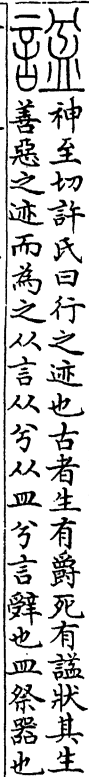 諡
神至切許氏曰行之迹也古者生有爵死有諡狀其生
善惡之迹而為之从言从兮从皿兮言辭也皿祭器也